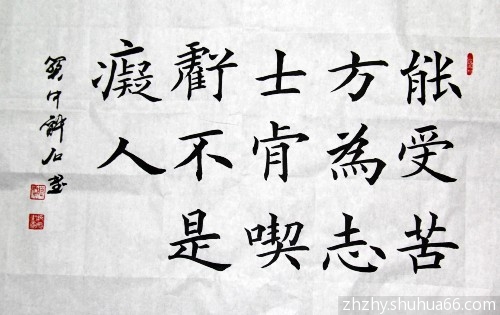 能受苦
方為志
士肯喫
虧不是
癡人
zhzhy.shuhua66.com